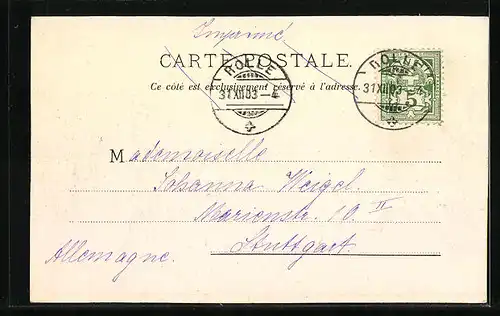 Imprimé
CARTE POSTALE.
ROLLE
31 XII 03 – 4
ROLLE
31 XII 03 – 4
5
Ce côté est exclusivement réservé à l'adresse.
Mademoiselle
Johanna Weigel.
Marienstr. 10 II
Stuttgart.
Allemagne.